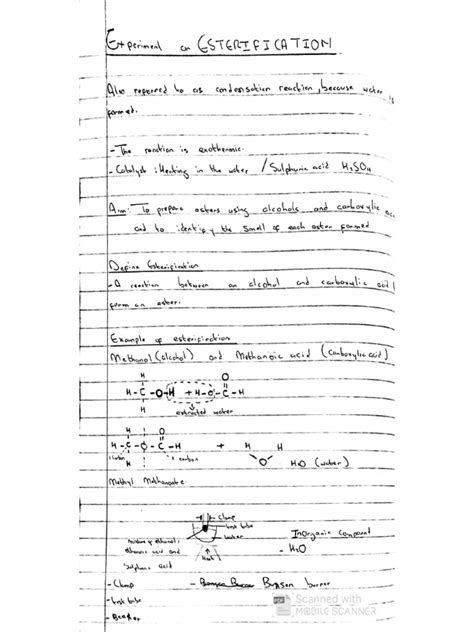 Experiment on ESTERIFICATION
Also referred to as condensation reaction, because water is
formed.
- The reaction is exothermic.
- Catalyst: Heating in the water / Sulphuric acid H₂SO₄
Aim: To prepare esters using alcohols and carboxylic
and to identify the smell of each ester formed
Define Esterification
- A reaction between an alcohol and carboxylic acid
form an ester.
Example of esterification
Methanol (alcohol) and Methanoic acid (carboxylic acid)
H O
H-C-O-H + H-O-C-H
H
water
H O
H-C-O-C-H + H H
H O H₂O (water)
1 carbon 1 carbon
Methyl Methanoate
Clamp
test tube
water
mixture of ethanol,
ethanoic acid and
Sulphuric acid
Heat
Inorganic Compound
- H₂O
- Clamp
- Bunsen burner
- test tube
- Beaker
PDF Scanned with
MOBILE SCANNER